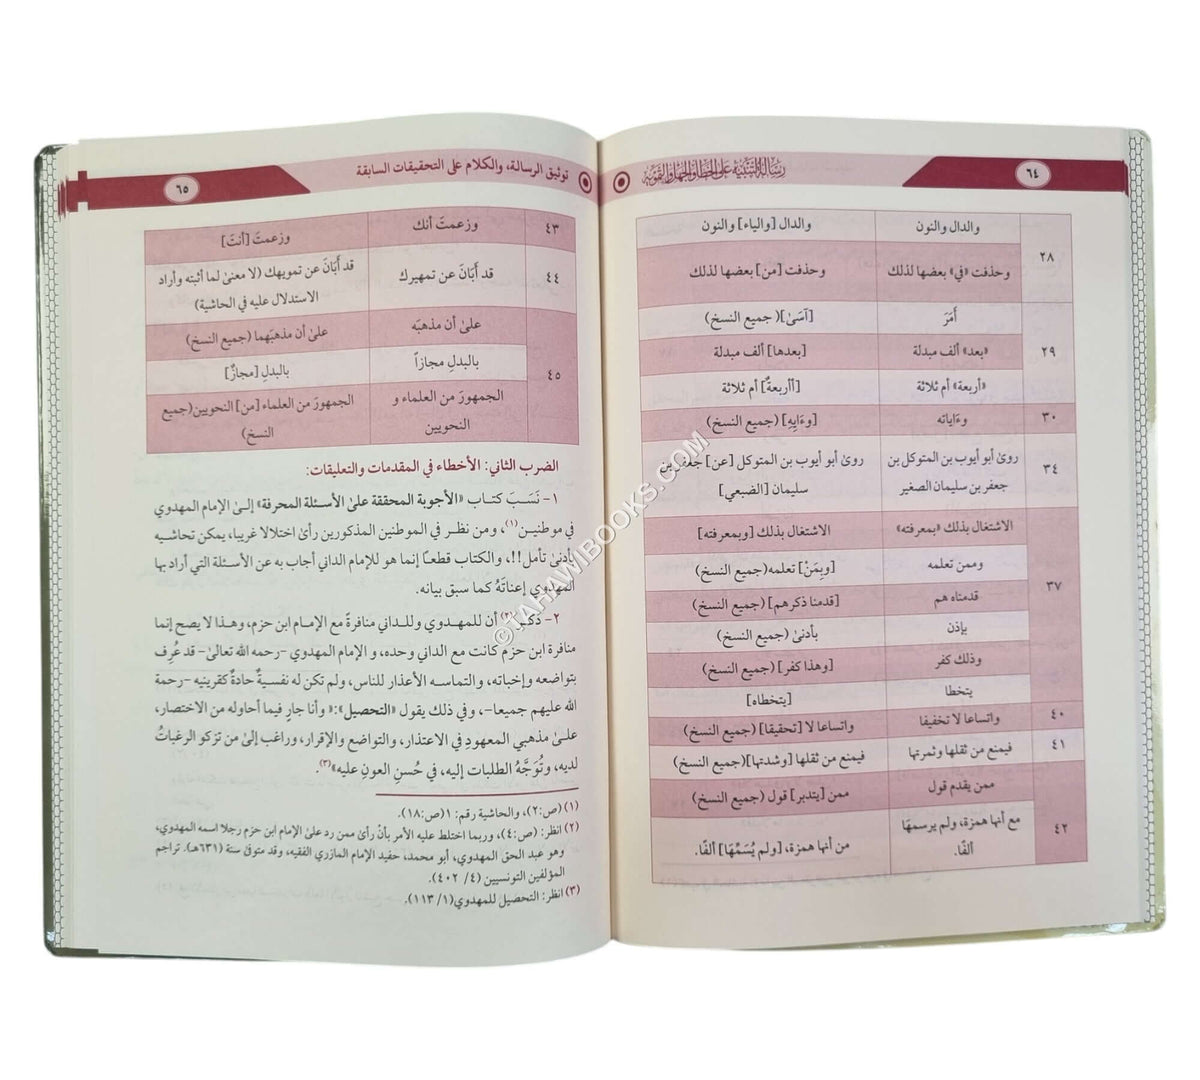 ٦٤
رسالة التنبيه على الخطأ والجهل والتمويه
٢٨
والدال والنون
والدال [والياء] والنون
وحذفت «في» بعضها لذلك
وحذفت [من] بعضها لذلك
٢٩
أَمَرَ
[آسَىٰ] (جميع النسخ)
«بعد» ألف مبدلة
[بعدها] ألف مبدلة
«أربعة» أم ثلاثة
[أأربعةٌ] أم ثلاثة
٣٠
وءاياته
[وءَايِهِ] (جميع النسخ)
٣٤
روىٰ أبو أيوب بن المتوكل بن
جعفر بن سليمان الصغير
روىٰ أبو أيوب بن المتوكل [عن] جعفر بن
سليمان [الضبعي]
٣٧
الاشتغال بذلك «بمعرفته»
الاشتغال بذلك [وبمعرفته]
وممن تعلمه
[وبِمَنْ] تعلمه(جميع النسخ)
قدمناه هم
[قدمنا ذكرهم] (جميع النسخ)
بإذن
بأدنىٰ (جميع النسخ)
وذلك كفر
[وهذا كفر] (جميع النسخ)
يتخطا
[يتخطاه]
٤٠
واتساعا لا تخفيفا
واتساعا لا [تحقيقا] (جميع النسخ)
٤١
فيمنع من ثقلها وثمرتها
فيمنع من ثقلها [وشدتها](جميع النسخ)
٤٢
ممن يقدم قول
ممن [يتدبر] قول (جميع النسخ)
مع أنها همزة، ولم يرسمهَا
ألفًا.
من أنها همزة، [ولم يُسَمِّهَا] ألفًا.
توثيق الرسالة، والكلام على التحقيقات السابقة
٦٥
٤٣
وزعمتَ أنك
وزعمتَ [أنتَ]
٤٤
قد أَبَانَ عن تمهيرك
قد أَبَانَ عن تمويهك (لا معنىٰ لما أثبته وأراد
الاستدلال عليه في الحاشية)
٤٥
علىٰ أن مذهبَه
علىٰ أن مذهبَهما (جميع النسخ)
بالبدلِ مجازاً
بالبدلِ [مجازٌ]
الجمهورَ من العلماء و
النحويين
الجمهورَ من العلماء [من] النحويين(جميع
النسخ)
الضرب الثاني: الأخطاء في المقدمات والتعليقات:
١- نَسَبَ كتاب «الأجوبة المحققة علىٰ الأسئلة المحرفة» إلىٰ الإمام المهدوي
في موطنين(١)، ومن نظر في الموطنين المذكورين رأىٰ اختلالا غريبا، يمكن تحاشيه
بأدنىٰ تأمل!!، والكتاب قطعًا إنما هو للإمام الداني أجاب به عن الأسئلة التي أراد بها
المهدوي إعناتَهُ كما سبق بيانه.
٢- ذكر(٢) أن للمهدوي وللداني منافرةً مع الإمام ابن حزم، وهذا لا يصح إنما
منافرة ابن حزم كانت مع الداني وحده، و الإمام المهدوي -رحمه الله تعالىٰ- قد عُرِف
بتواضعه وإخباته، والتماسه الأعذار للناس، ولم تكن له نفسيةٌ حادةٌ كقرينيه -رحمة
الله عليهم جميعا-، وفي ذلك يقول «التحصيل»:« وأنا جارٍ فيما أحاوله من الاختصار،
علىٰ مذهبي المعهودِ في الاعتذار، والتواضع والإقرار، وراغب إلىٰ من تزكو الرغباتُ
لديه، وتُوَجَّهُ الطلبات إليه، في حُسنِ العونِ عليه»(٣).
(١) (ص:٢٠)، والحاشية رقم: ١(ص:١٨).
(٢) انظر: (ص:٤)، وربما اختلط عليه الأمر بأنْ رأىٰ ممن رد علىٰ الإمام ابن حزم رجلا اسمه المهدوي،
وهو عبد الحق المهدوي، أبو محمد، حفيد الإمام المازري الفقيه، وقد متوفىٰ سنة (٦٣١هـ). تراجم
المؤلفين التونسيين (٤/ ٤٠٢).
(٣) انظر: التحصيل للمهدوي(١/ ١١٣).
©TAHAWIBOOKS.COM